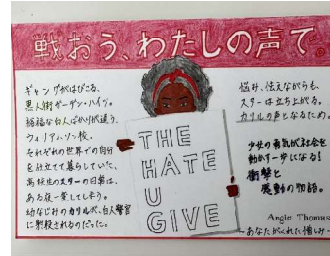 戦おう、わたしの声で。
ギャングがはびこる、
黒人街ガーデン・ハイツ。
裕福な白人ばかりが通う、
ウィリアムソン校。
それぞれの世界での自分
を仕立てて暮らしていた、
高校生のスターの日常は、
ある夜一変してしまう。
幼なじみのカリルが、白人警官
に射殺されるのだった。
THE
HATE
U
GIVE
悩み、怯えながらも、
スターは立ち上がる。
カリルの声となるため。
少女の勇気が社会を
動かす一歩になる!
衝撃と
感動の物語。
Angie Thomas
あなたがくれた憎しみ